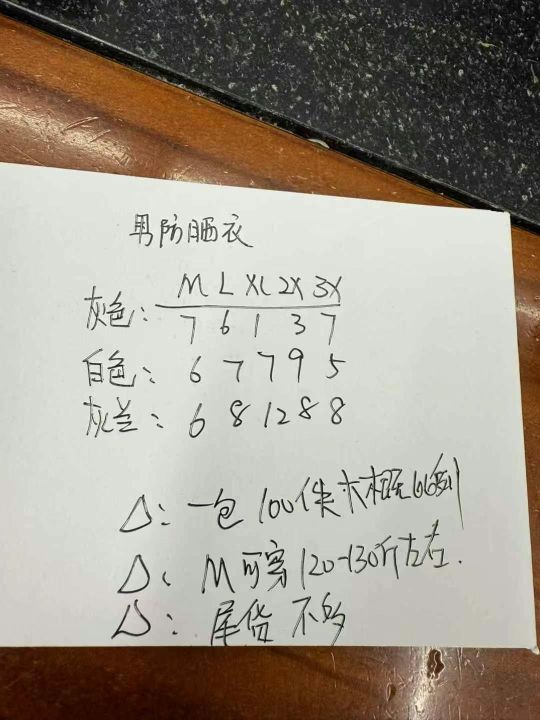 男防晒衣
M L XL 2X 3X
灰色: 7 6 1 3 7
白色: 6 7 7 9 5
灰兰: 6 8 12 8 8
△: 一包100件大概比例
△: M可穿120-130斤左右.
△: 尾货不多